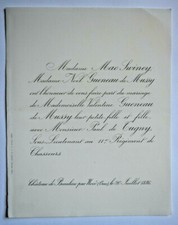 Madame Mac Swiney
Madame Noël Gueneau de Mussy
ont l'honneur de vous faire part du mariage
de Mademoiselle Valentine Gueneau
de Mussy leur petite fille et fille,
avec Monsieur Paul de Cugny,
Sous-Lieutenant au 11e Régiment de
Chasseurs
Château de par le Juillet